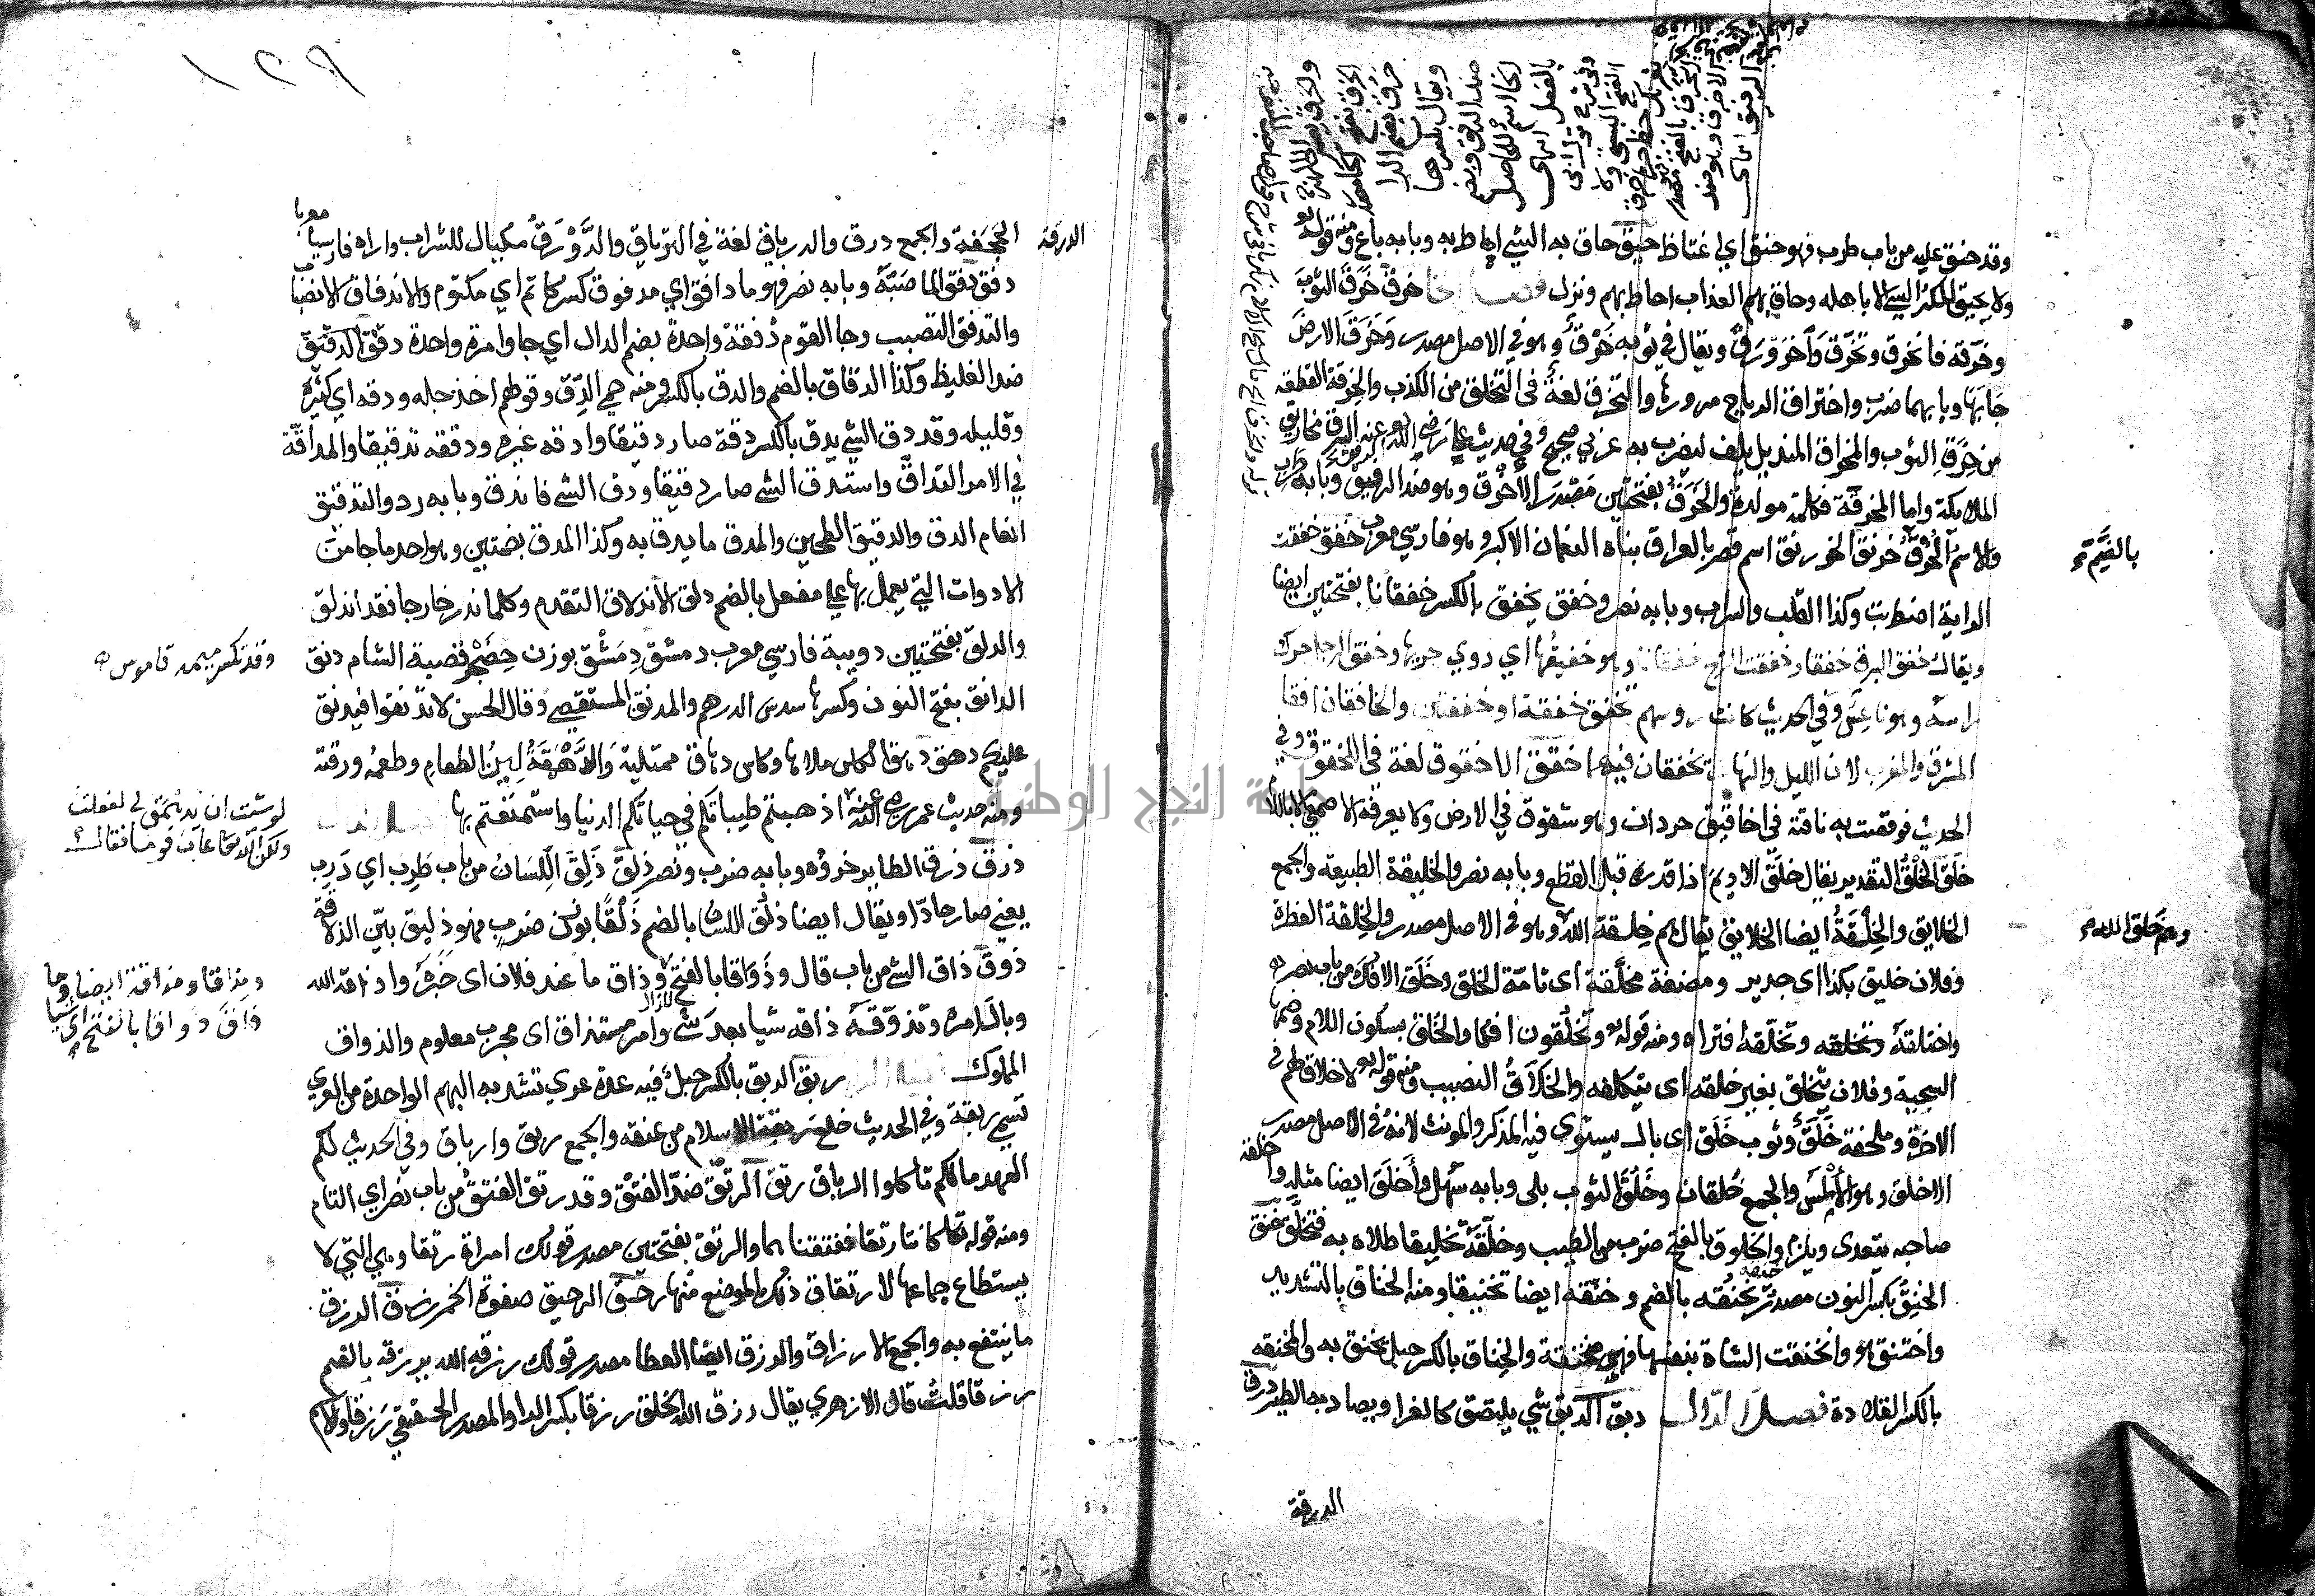 وقد حنق عليه من باب طرب فهو حنق اي اغتاظ حيق حاق به الشي احاط به وبابه باع ومنه قوله تع
ولا يحيق المكر السيئ الا باهله وحاق بهم العذاب احاط بهم ونزل فصل الخا خرق خرق الثوب
وخرقه فانخرق وتخرق واخرورق ويقال في ثوبه خرق وهو في الاصل مصدر وخرق الارض
جابها وبابهما ضرب واختراق الرياح مرورها والتخرق لغة في التخلق من الكذب والخرقة القطعة
من خرق الثوب والمخراق المنديل يلف ليضرب به عربي صحيح وفي حديث علي رضي الله عنه البرق مخاريق
الملائكة واما المخرقة فكلمة مولدة والخرق بفتحتين مصدر الاخرق وهو ضد الرفيق وبابه طرب
والاسم الخرق خرنق الخورنق اسم قصر بالعراق بناه النعمان الاكبر وهو فارسي معرب خفق خفقت
الراية اضطربت وكذا القلب والسراب وبابه نصر وخفق يخفق بالكسر خفقانا بفتحتين ايضا
ويقال خفق البرق خفقا وخفقت الريح خفقانا وهو خفيفها اي دوي جريها وخفق الرجل حرك
راسه وهو ناعس وفي الحديث كانت روسهم تخفق خفقة او خفقتين والخافقان افقا
المشرق والمغرب لان الليل والنهار يخفقان فيهما خقق الاخقوق لغة في اللخقوق وفي
الحديث فوقصت به ناقته في اخاقيق جردان وهو شقوق في الارض ولا يعرفه الاصمعي الا باللام
خلق الخلق التقدير يقال خلق الاديم اذا قدره قبل القطع وبابه نصر والخليقة الطبيعة والجمع
الخلايق والخلقة ايضا الخلايق يقال هم خليقة الله وهو في الاصل مصدر والخلقة الفطرة
وفلان خليق بكذا اي جدير ومضغة مخلقة اي تامة الخلق وخلق الافك من باب نصر
واختلقه وتخلقه افتراه ومنه قوله تع وتخلقون افكا والخلق بسكون اللام وضمها
السجية وفلان يتخلق بغير خلقه اي يتكلفه والخلاق النصيب ومنه قوله تع لا خلاق لهم في
الاخرة وملحفة خلق وثوب خلق اي بال يستوي فيه المذكر والمونث لانه في الاصل مصدر
الاخلق وهو الاملس والجمع خلقان وخلق الثوب بلى وبابه سهل واخلق ايضا مثله واخلقه
صاحبه يتعدى ويلزم والخلوق بالفتح ضرب من الطيب وخلقه تخليقا طلاه به فتخلق خنق
الخنق بكسر النون مصدر خنقه يخنقه بالضم وخنقه ايضا تخنيقا ومنه الخناق بالتشديد
واختنق هو وانخنقت الشاة بنفسها فهي منخنقة والخناق بالكسر حبل يخنق به والمخنقة
بالكسر القلادة فصل الدال دبق الدبق شي يلتصق كالغرا ويصاد به الطير درق
الدرقة
بالضم
وهم خلق الله
١٢٩
الدرقة الحجفة والجمع درق والدرياق لغة في الترياق والدورق مكيال للشراب واراه فارسيا معربا
دفق دفق الما صبه وبابه نصر فهو ما دافق اي مدفوق كسر كاتم اي مكتوم والاندفاق الانصباب
والتدفق التصبب وجا القوم دفقة واحدة بضم الدال اي جاوا مرة واحدة دقق الدقيق
ضد الغليظ وكذا الدقاق بالضم والدق بالكسر ومنه حمى الدق وقولهم اخذ جله ودقه اي كثيره
وقليله وقد دق الشي يدق بالكسر دقة صار دقيقا وادقه غيره ودققه تدقيقا والمداقة
في الامر التداق واستدق الشي صار دقيقا ودق الشي فاندق وبابه رد والتدقيق
انعام الدق والدقيق الطحين والمدق ما يدق به وكذا المدق بضمتين وهو احد ما جا من
الادوات التي يعمل بها على مفعل بالضم دلق الاندلاق التقدم وكلما ندر خارجا فقد اندلق
والدلق بفتحتين دويبة فارسي معرب دمشق دمشق بوزن حضجر قصبة الشام دنق
الدانق بفتح النون وكسرها سدس الدرهم والمدنق المستقصي وقال الحسن لا تدنقوا فيدنق
عليكم دهق دهق الكاس ملاها وكاس دهاق ممتلية والدهقة لين الطعام وطعمه ورقته
ومنه حديث عمر رضي الله عنه اذهبتم طيباتكم في حياتكم الدنيا واستمتعتم بها
ذرق ذرق الطاير خروه وبابه ضرب ونصر ذلق ذلق اللسان من باب طرب اي ذرب
يعني صار حادا ويقال ايضا ذلق اللسان بالضم ذلقا بوزن ضرب فهو ذليق بين الذلاقة
ذوق ذاق الشي من باب قال وذواقا بالفتح وذاق ما عند فلان اي خبره واذاقه الله
وبال امره وتذوقه ذاقه شيا بعد شي وامر مستذاق اي مجرب معلوم والذواق
الملوك ربق الربق بالكسر حبل فيه عدة عري تشد به البهم الواحدة من العري
تسمى ربقة وفي الحديث خلع ربقة الاسلام من عنقه والجمع ربق وارباق وفي الحديث لكم
العهد ما لم تاكلوا الرباق رتق الرتق ضد الفتق وقد رتق الفتق من باب نصر اي التام
ومنه قوله تع كانتا رتقا ففتقناهما والرتق بفتحتين مصدر قولك امراة رتقا وهي التي لا
يستطاع جماعها لارتتاق ذلك الموضع منها رحق الرحيق صفوة الخمر رزق الرزق
ما ينتفع به والجمع الارزاق والرزق ايضا العطا مصدر قولك رزقه الله يرزقه بالضم
رزقا قلت قال الازهري يقال رزق الله الخلق رزقا بكسر الرا والمصدر الحقيقي رزقا والاسم
وقد تكسر ميمه قاموس
لو شئت ان يدهمق لي لفعلت
ولكن الله تعا عاب قوما فقال
ومذاقا ومذاقة ايضا وما
ذاق ذواقا بالفتح اي شيا
جامعة النجاح الوطنية